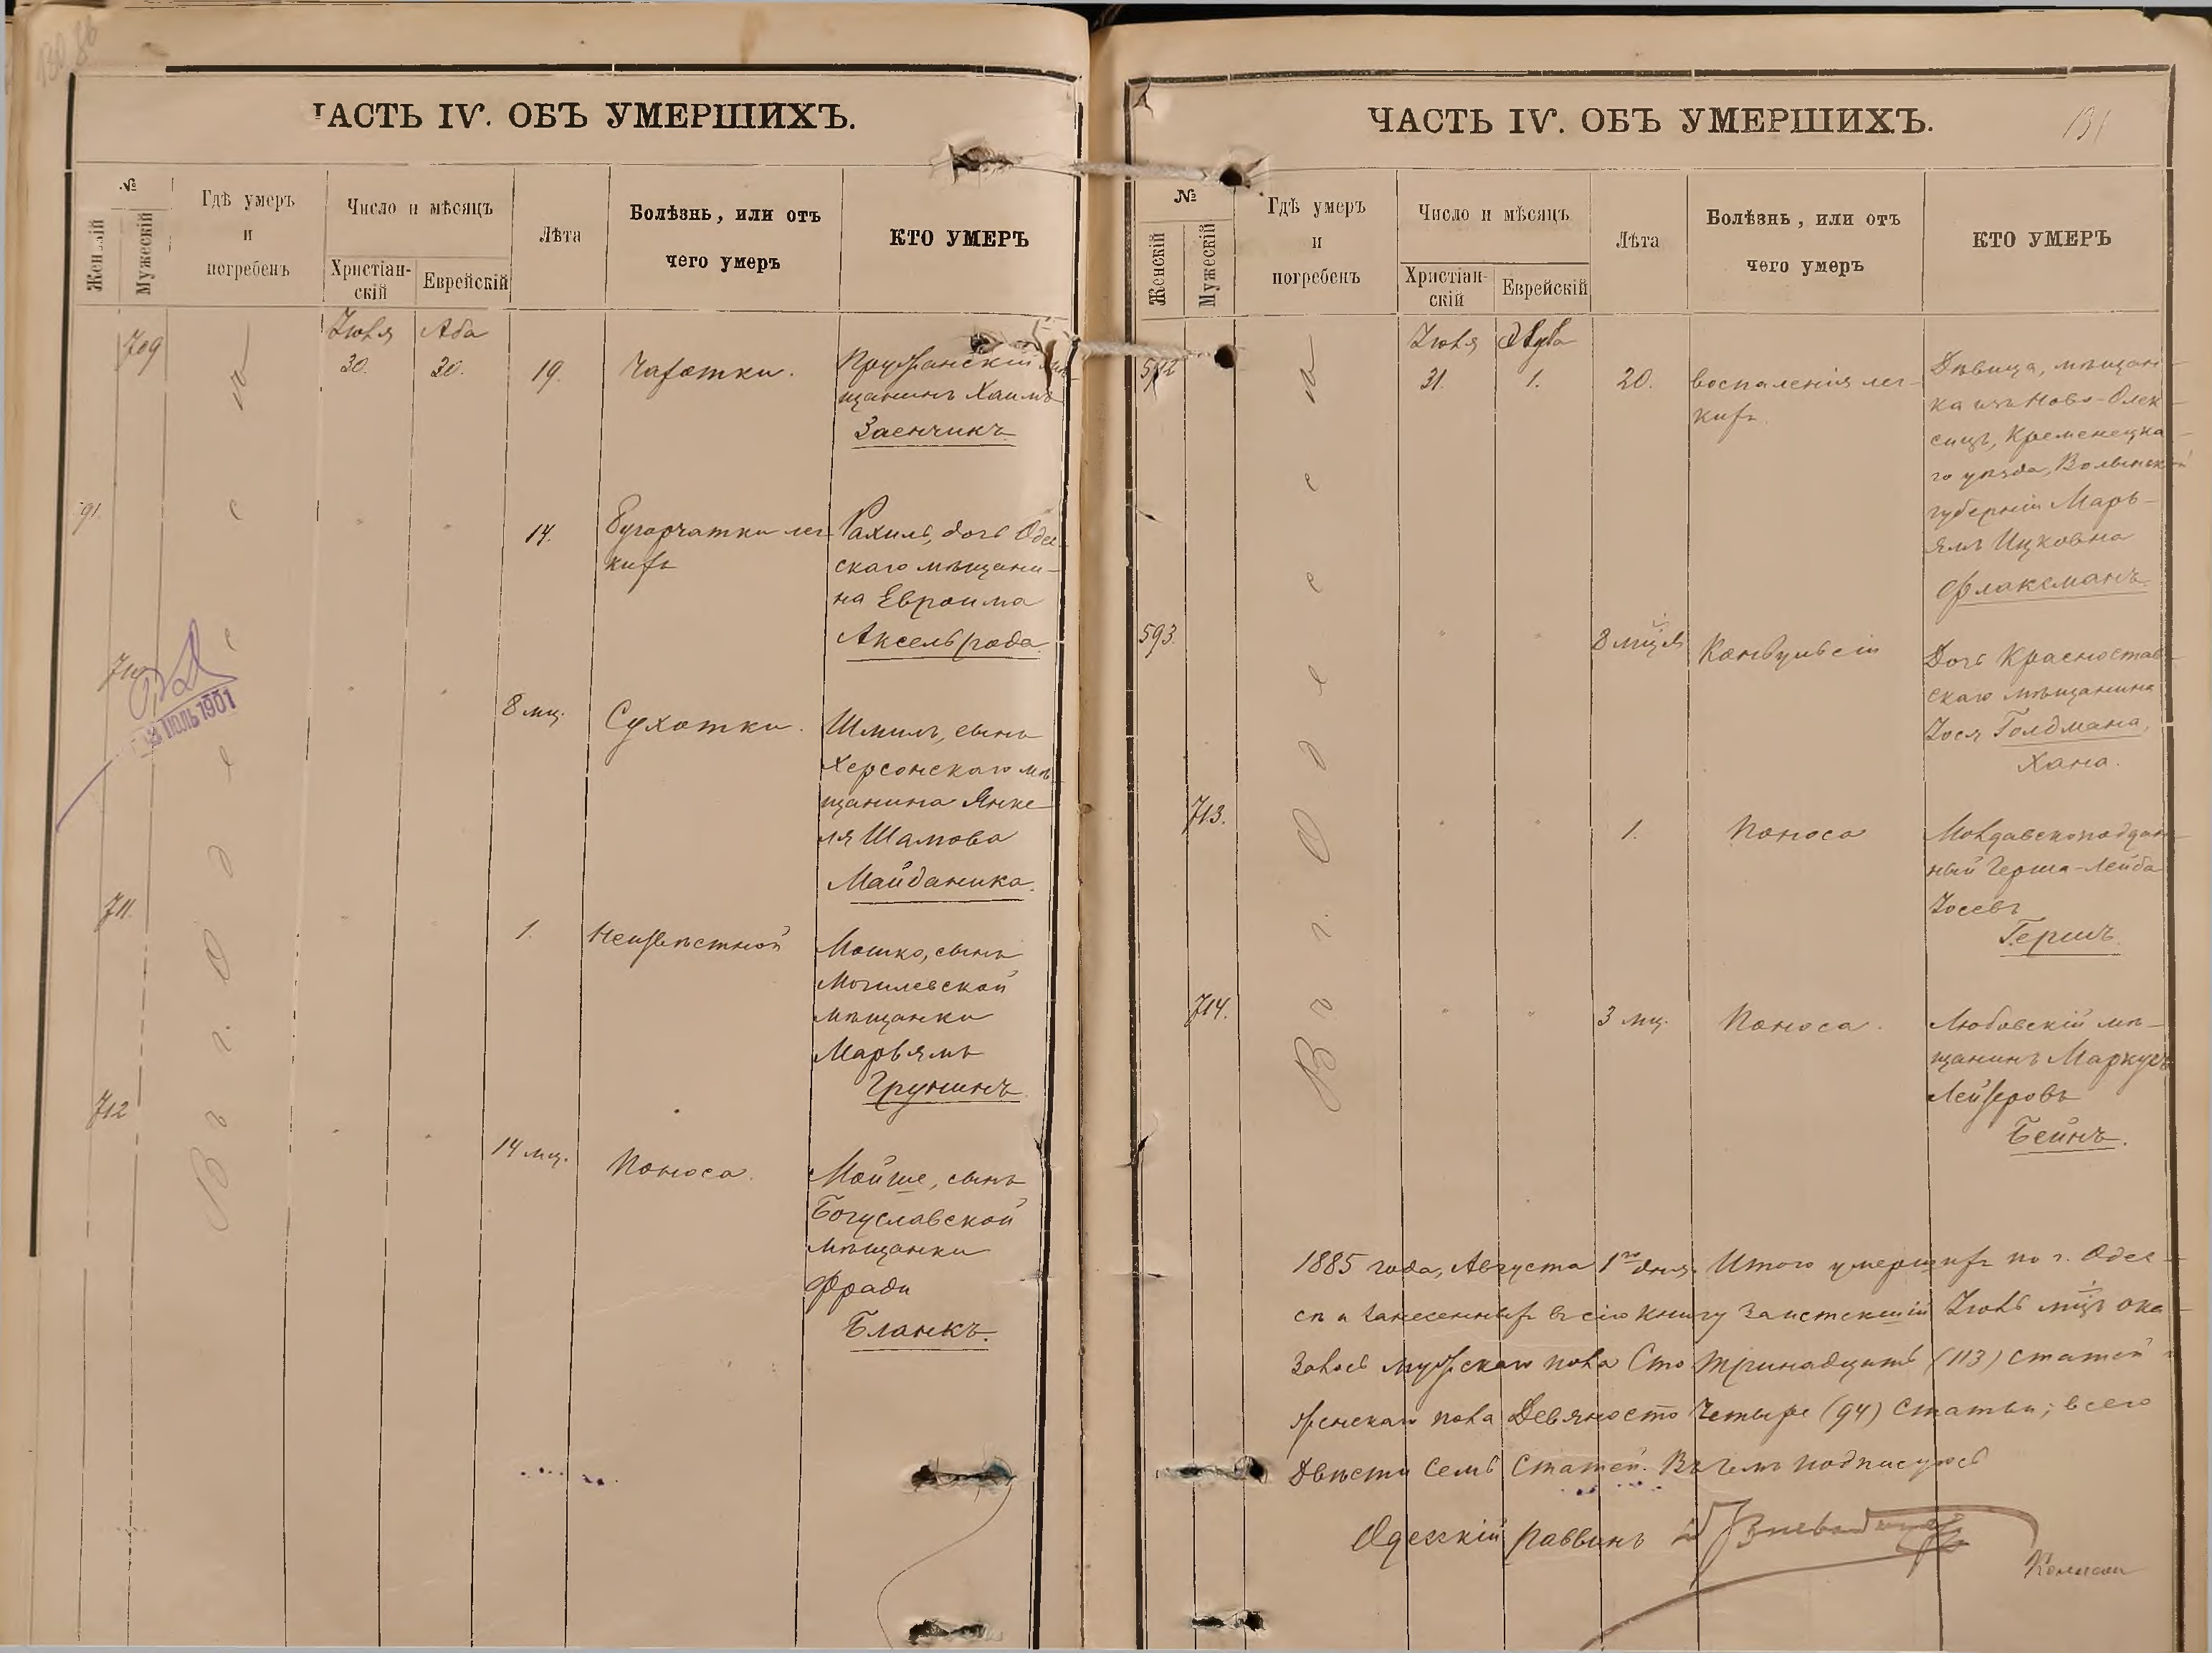 ЧАСТЬ IV. ОБЪ УМЕРШИХЪ.
№
Женскій
Мужескій
Гдѣ умеръ
и
погребенъ
Число и мѣсяцъ
Христіан-
скій
Еврейскій
Лѣта
Болѣзнь, или отъ
чего умеръ
КТО УМЕРЪ
Въ г. Одессѣ
709
Іюля
30.
Аба
30.
19.
Чахотки.
Пружанскій мѣ-
щанинъ Хаимъ
Заенчикъ
591.
14.
Бугорчатки лег-
кихъ
Рахиль, дочь Одес-
скаго мѣщани-
на Евроима
Аксельрода.
710
8 мц.
Сухотки.
Шмиль, сынъ
Херсонскаго мѣ-
щанина Янке-
ля Шамова
Майданика.
711.
1.
Неизвѣстной
Мошко, сынъ
Могилевской
мѣщанки
Марьямъ
Грунинъ.
712
14 мц.
Поноса.
Мойше, сынъ
Богуславской
мѣщанки
Фради
Бланкъ.
ІЮЛЬ 1901
ЧАСТЬ IV. ОБЪ УМЕРШИХЪ.
131
№
Женскій
Мужескій
Гдѣ умеръ
и
погребенъ
Число и мѣсяцъ
Христіан-
скій
Еврейскій
Лѣта
Болѣзнь, или отъ
чего умеръ
КТО УМЕРЪ
Въ г. Одессѣ
592
Іюля
31.
1.
20.
воспаленія лег-
кихъ.
Дѣвица, мѣщан-
ка изъ Ново-Олек-
синцъ, Кременецка-
го уѣзда, Волынской
губерніи Марь-
ямъ Ицковна
Флаксманъ.
593.
8 мцъ
Конвульсіи
Дочь Красностав-
скаго мѣщанина
Іося Голдмана,
Хана.
713.
1.
Поноса
Молдавскоподдан-
ный Герша-Лейба
Іосевъ
Гершъ.
714.
3 мц.
Поноса.
Любовскій мѣ-
щанинъ Маркусъ
Лейзеровъ
Бейнъ.
1885 года, Августа 1го дня. Итого умершихъ по г. Одес-
сѣ и занесенныхъ въ сію книгу за истекшій Іюль мцъ ока-
залось мужскаго пола Сто тринадцать (113) статей
женскаго пола Девяносто Четыре (94) Статьи; всего
Двѣсти Семь Статей. Въ чемъ подписуюсь
Одесскій раввинъ